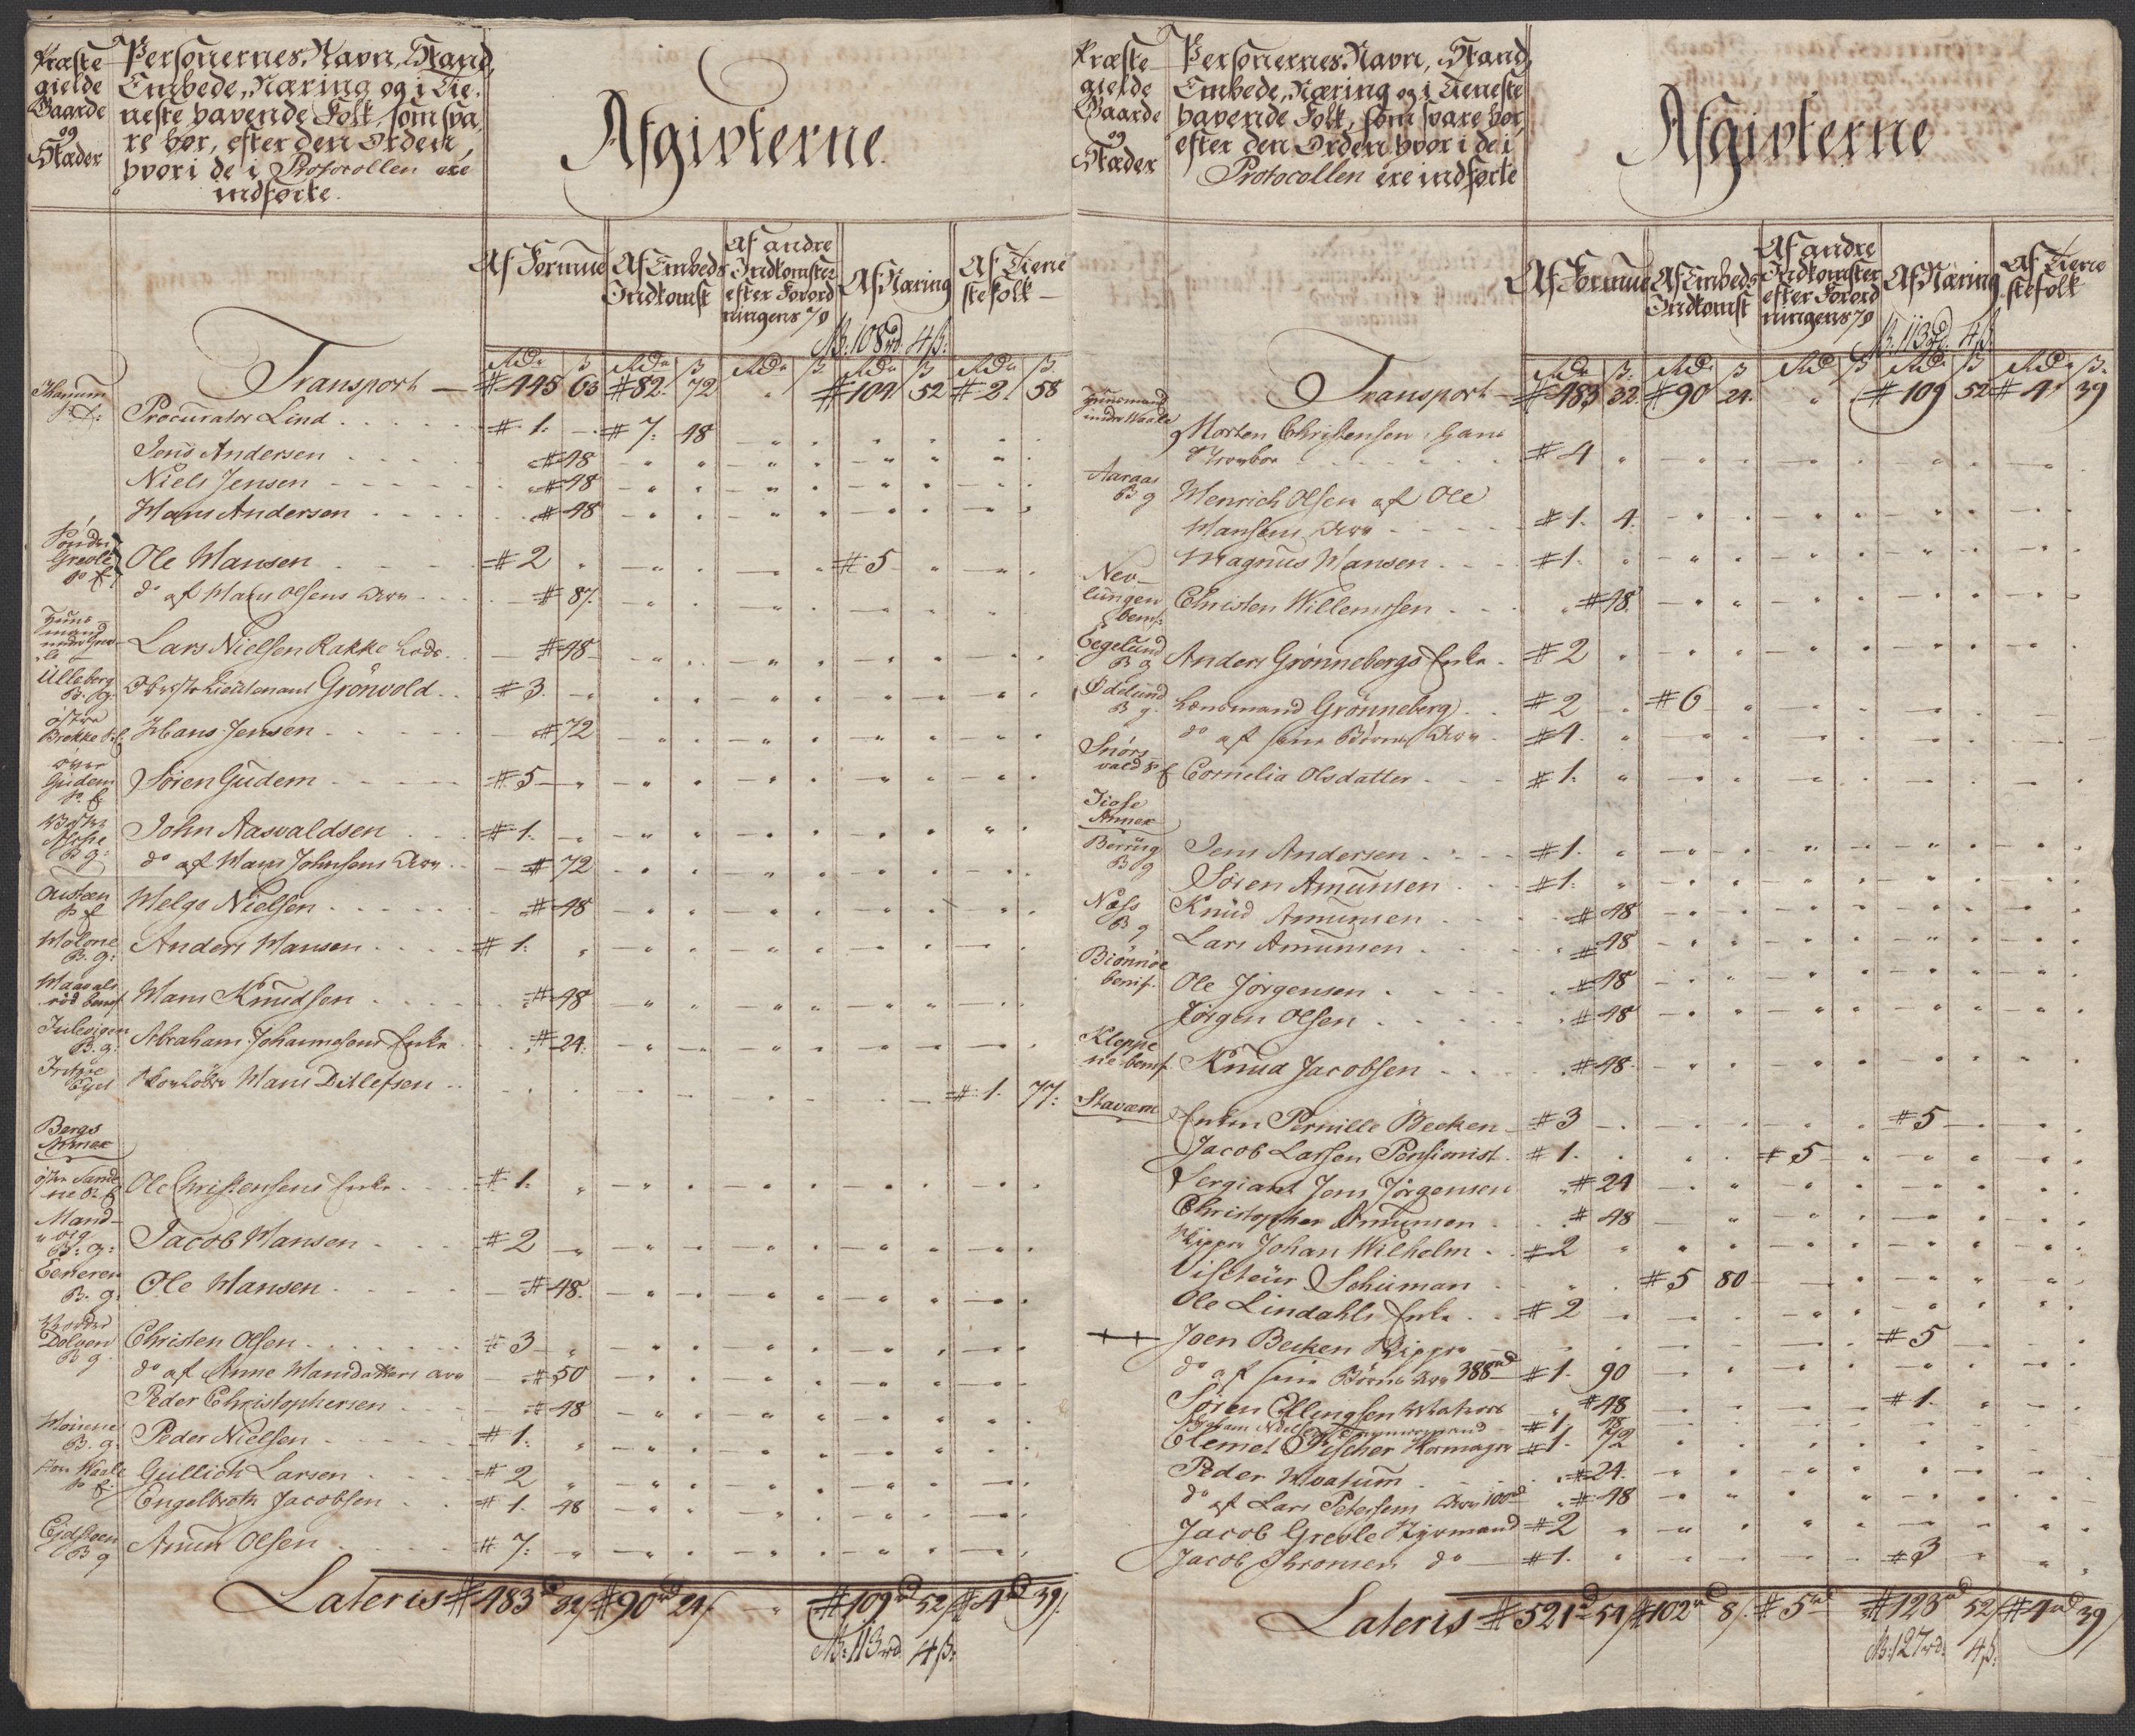 Præste
gielde
Gaarde
og
Stæder
Personernes Navn, Stand,
Embede, Næring og i Tie,
neste havende Folk, som sva,
re her, efter den Orden,
hvori de i Protocollen ere
indførte.
Afgivterne.
Af Formue
Af Embeds Indkomst
Af andre Indkomster efter Forordningens 7 §
Af Næring
Af Tienestefolk
NB. 108 rd. 4 ß.
Rdr ß Rdr ß Rdr ß Rdr ß Rdr ß
Transport — # 445 63 # 82. 72 " # 104 52 # 2. 58
Procurator Lind # 1. — # 7. 48
Jens Andersen # 48
Niels Jensen # 48
Hans Andersen # 48
Søndre Grevle Ole Hansen # 2 # 5
do af Hans Olsens Arv # 87
Lars Nielsen Rakke Lods # 48
Ulleborg B. g. Oberstlieutenant Grönvold # 3
østre Brekke Hans Jensen # 72
øvre Gudem Søren Gudem # 5
B. g. John Aasvaldsen # 1.
do af Hans Johnsens Arv # 72
Austeen Helge Nielsen # 48
Holone B. g. Anders Hansen # 1.
Hans Knudsen # 48
Julevigen B. g. Abraham Johannesens Enke # 24.
Hans Ditlefsen # 1. 77.
Bergs
Annex
Ole Christensens Enke # 1.
B. g. Jacob Hansen # 2
Eeneren B. g. Ole Hansen # 48.
Nordre Dolven B g Christen Olsen # 3
do af Anne Hansdatters Arv # 50
Peder Christophersen # 48
B. g. Peder Nielsen # 1.
Gullich Larsen # 2
Engelbreth Jacobsen # 1. 48
B g Amun Olsen # 7.
Lateris # 483 rd 32/ # 90 rd 24/ " # 109 rd 52/ # 4 rd 39/.
NB. 113 rd. 4 ß.
Præste
gielde
Gaarde
og
Stæder
Personernes Navn, Stand,
Embede, Næring og i Tieneste
havende Folk, som svare her,
efter den Orden hvori de i
Protocollen ere indførte
Afgivterne
Af Formue
Af Embeds Indkomst
Af andre Indkomster efter Forordningens 7 §
Af Næring
Af Tienestefolk
NB. 113 rd. 4 ß.
Rdr ß Rdr ß Rd ß Rdr ß Rdr ß
Transport — # 483 32. # 90 24. " # 109 52 # 4 39
Morten Christensen # 4
Aaraas B g Henrich Olsen af Ole
Hansens Arv # 1. 4.
Magnus Hansen # 1.
Nevlungen Christen Willemsen # 48.
Eegelund B g Anders Grønnebergs Enke # 2
Ødelund B g. Lensmand Grönneberg # 2 # 6
do af sine Børns Arv # 4.
Cornelia Olsdatter # 1.
Annex
B g Jens Andersen # 1.
Søren Amunsen # 1.
Næss B g Knud Amunsen # 48
Lars Amunsen # 48
Biønnøe benif. Ole Jørgensen # 48
Jørgen Olsen # 48
Kleppene benif. Knud Jacobsen # 48
Staværn Enken Pernille Becken # 3 # 5
Jacob Larsen Pensionist # 1. # 5
Sergiant Jens Jørgensen # 24
Christopher Amunsen # 48
Skipper Johan Wilhelm # 2
Visiteur Schuman # 5 80
Ole Lindahls Enke # 2
Joen Becken Skipper # 5
do af sine Børns Arv 388 rd # 1. 90
Søren Ellingsen # 48 # 1.
Abraham Nielsen Tømmermand # 1. 48
Clemet Fischer # 1. 72
Peder Hvatum # 24.
do af Lars Petersens Arv 100 rd # 48
Jacob Grevle Styrmand # 2
Jacob Thronsen do # 1. # 3
Lateris # 521 rd 54/ # 102 rd 8/. # 5 rd # 123 rd 52/ # 4 rd 39/
NB. 127 rd. 4 ß.